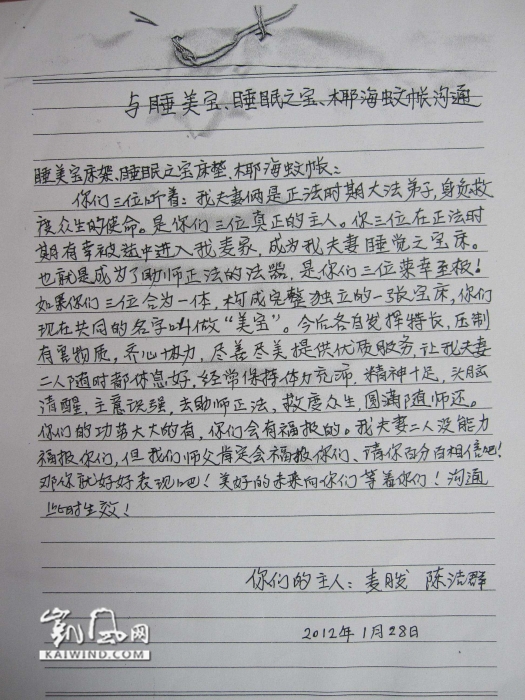 与睡美宝、睡眠之宝、椰海蚊帐沟通
睡美宝床架、睡眠之宝床垫、椰海蚊帐：
你们三位听着：我夫妻俩是正法时期大法弟子，身负救
度众生的使命。是你们三位真正的主人。你三位在正法时
期有幸被选中进入我麦家，成为我夫妻睡觉之宝床。
也就是成为了助师正法的法器，是你们三位荣幸至极！
如果你们三位合为一体，构成完整独立的一张宝床，你们
现在共同的名字叫做“美宝”。今后各自发挥特长，压制
有害物质，齐心协力，尽善尽美提供优质服务，让我夫妻
二人随时都休息好，经常保持体力充沛，精神十足，头脑
清醒，主意识强，去助师正法，救度众生，圆满随师还。
你们的功劳大大的有，你们会有福报的。我夫妻二人没能力
福报你们，但我们师父肯定会福报你们、请你百分百相信吧！
那你就好好表现吧！美好的未来向你们等着你们！沟通
此时生效！
你们的主人：麦胜 陈洁群
2012年1月28日
凯风网
KAIWIND.COM